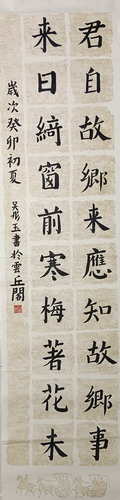 君自故鄉来應知故鄉事
来日綺窗前寒梅著花未
歲次癸卯初夏
吳彤玉書於雲丘閣